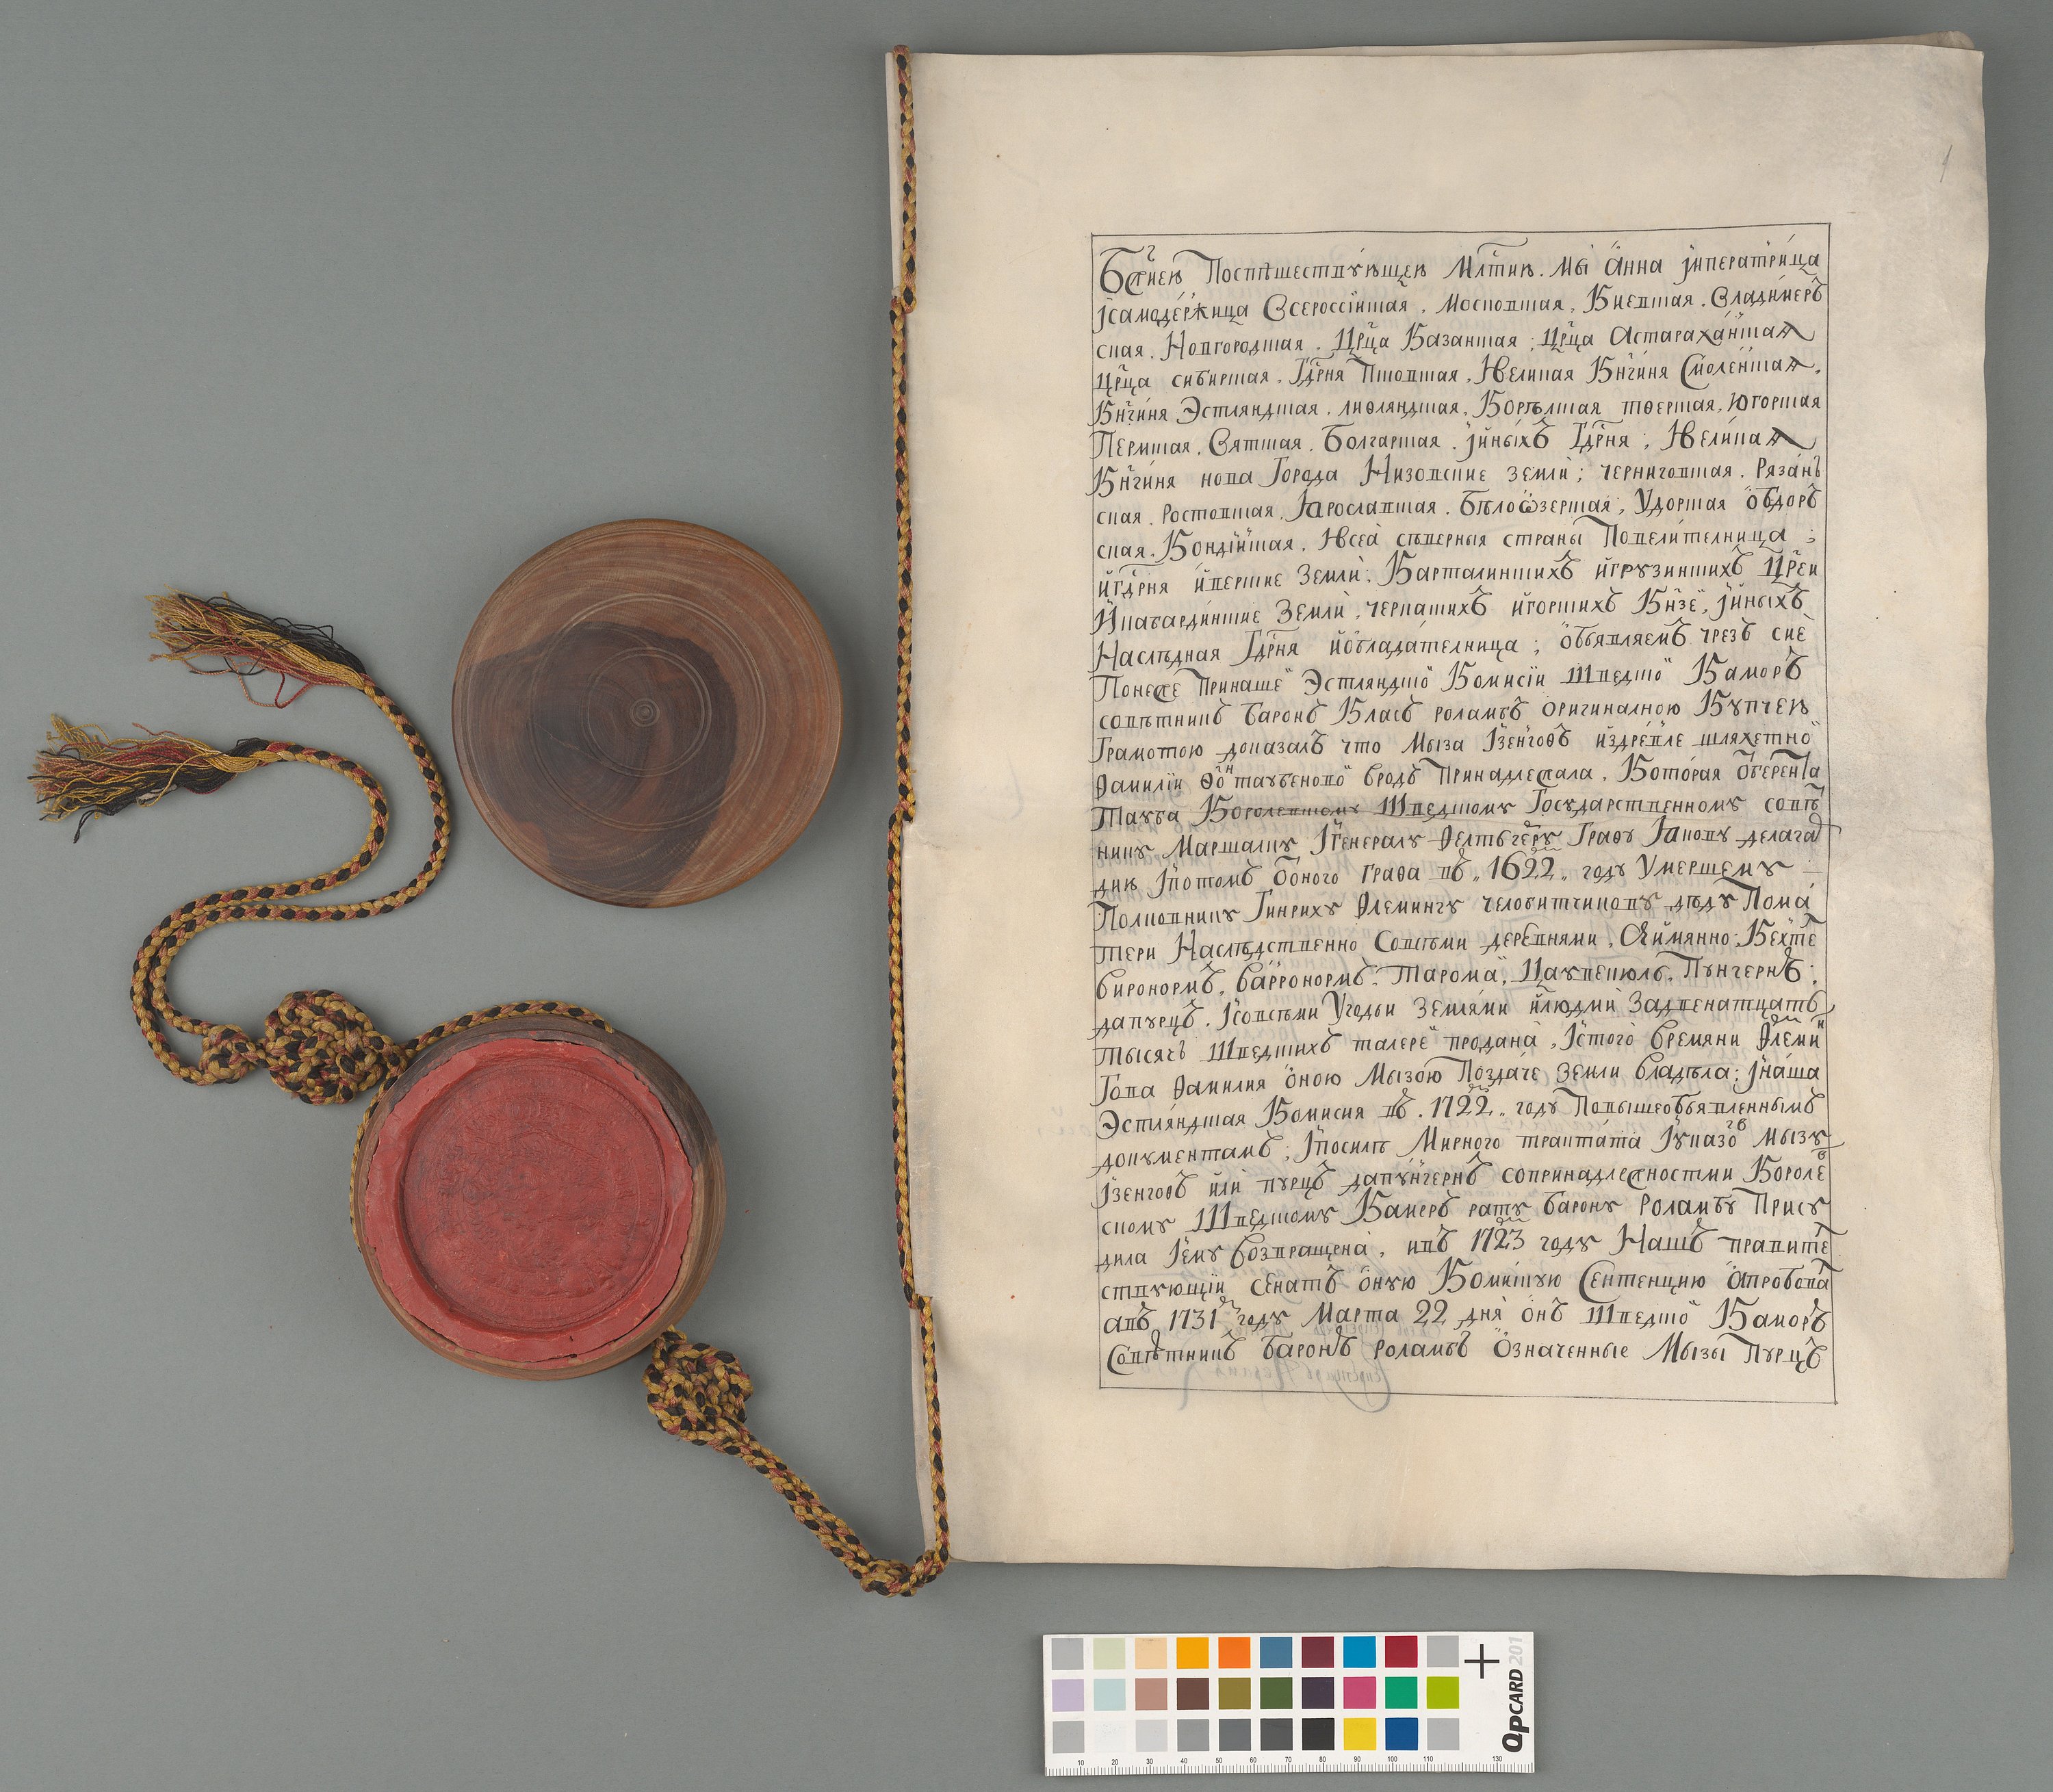 Бж҃иею Поспѣшествующею Млстию. Мы Анна императрица
исамодержица Всероссійская. Московская. Киевская. Владимер
ская. Новгородская. Црца Казанская; Црца Астараханская
Црца сибирская. Гдрня Псковская. Ивеликая Кнгиня Смоленская.
Кнгиня Эстляндская. лифляндская. Корѣлская тверская. Югорская
Пермская. Вятская. Болгарская. ииныхъ Гдрня; Ивеликая
Кнгиня нова Города Низовские земли; черниговская. Рязанъ
ская. Ростовская. Ярославская. бѣлоѡзерская; Удорская обдоръ
ская. Кондійская. Ивсеа сѣверныя страны Повелителница;
игдрня иверские Земли. Карталинскихъ игрузинскихъ Црей
Икабардинские Земли. черкаскихъ игорскихъ Кнзе, ииныхъ
Наслѣдная Гдрня иобладателница; объявляемъ чрезъ сие
Понеже Принаше Эстляндско Комисіи Шведско Каморъ
совѣтникъ баронъ Класъ роламбъ оригиналною Купчею
Грамотою доказалъ что Мыза Изенгофъ издревле шляхетно
Фамилии фон таубеново вродъ Принадлежала. Которая
Тауба Королевскому Шведскому Государственному совѣ
нику Маршалку Игенералу Фелтьгеру Графъ Якову делага
дию Ипотомъ Графа въ 1622 году Умершему
Полковнику Гинриху Флемингу челобитчикову дѣду Пома
тери Наслѣдственно Совсѣми деревнями, Аимянно: Кехте
виронормъ. варронормъ. Тарома. Цаувекюлъ. Пунгернъ;
дапурцъ. Исовсѣми Угодьи Землями илюдми Задвенатцать
тысячъ Шведскихъ талере продана. Истого времяни Флеми
Гова Фамилия оною Мызою Поздаче земли владѣла; инаша
Эстляндская Комисия въ. 1722. году Повышеобъявленнымъ
документамъ; Ипосилѣ Мирного трактата Иуказо Мызу
Изенгофъ или пурцъ дапунгернъ сопринадлежностми Короле
скому Шведскому Камеръ рату барону роламбу Прису
дила Иему возвращена. ивъ 1723 году Нашъ правите
ствующіи сенатъ оную Комискую Сентенцию апробова
авъ 1731 году Марта 22 дня онъ Шведско Каморъ
Совѣтникъ баронъ роламбъ Означенные Мызы Пурцъ
1
QPCARD 201
10 20 30 40 50 60 70 80 90 100 110 130